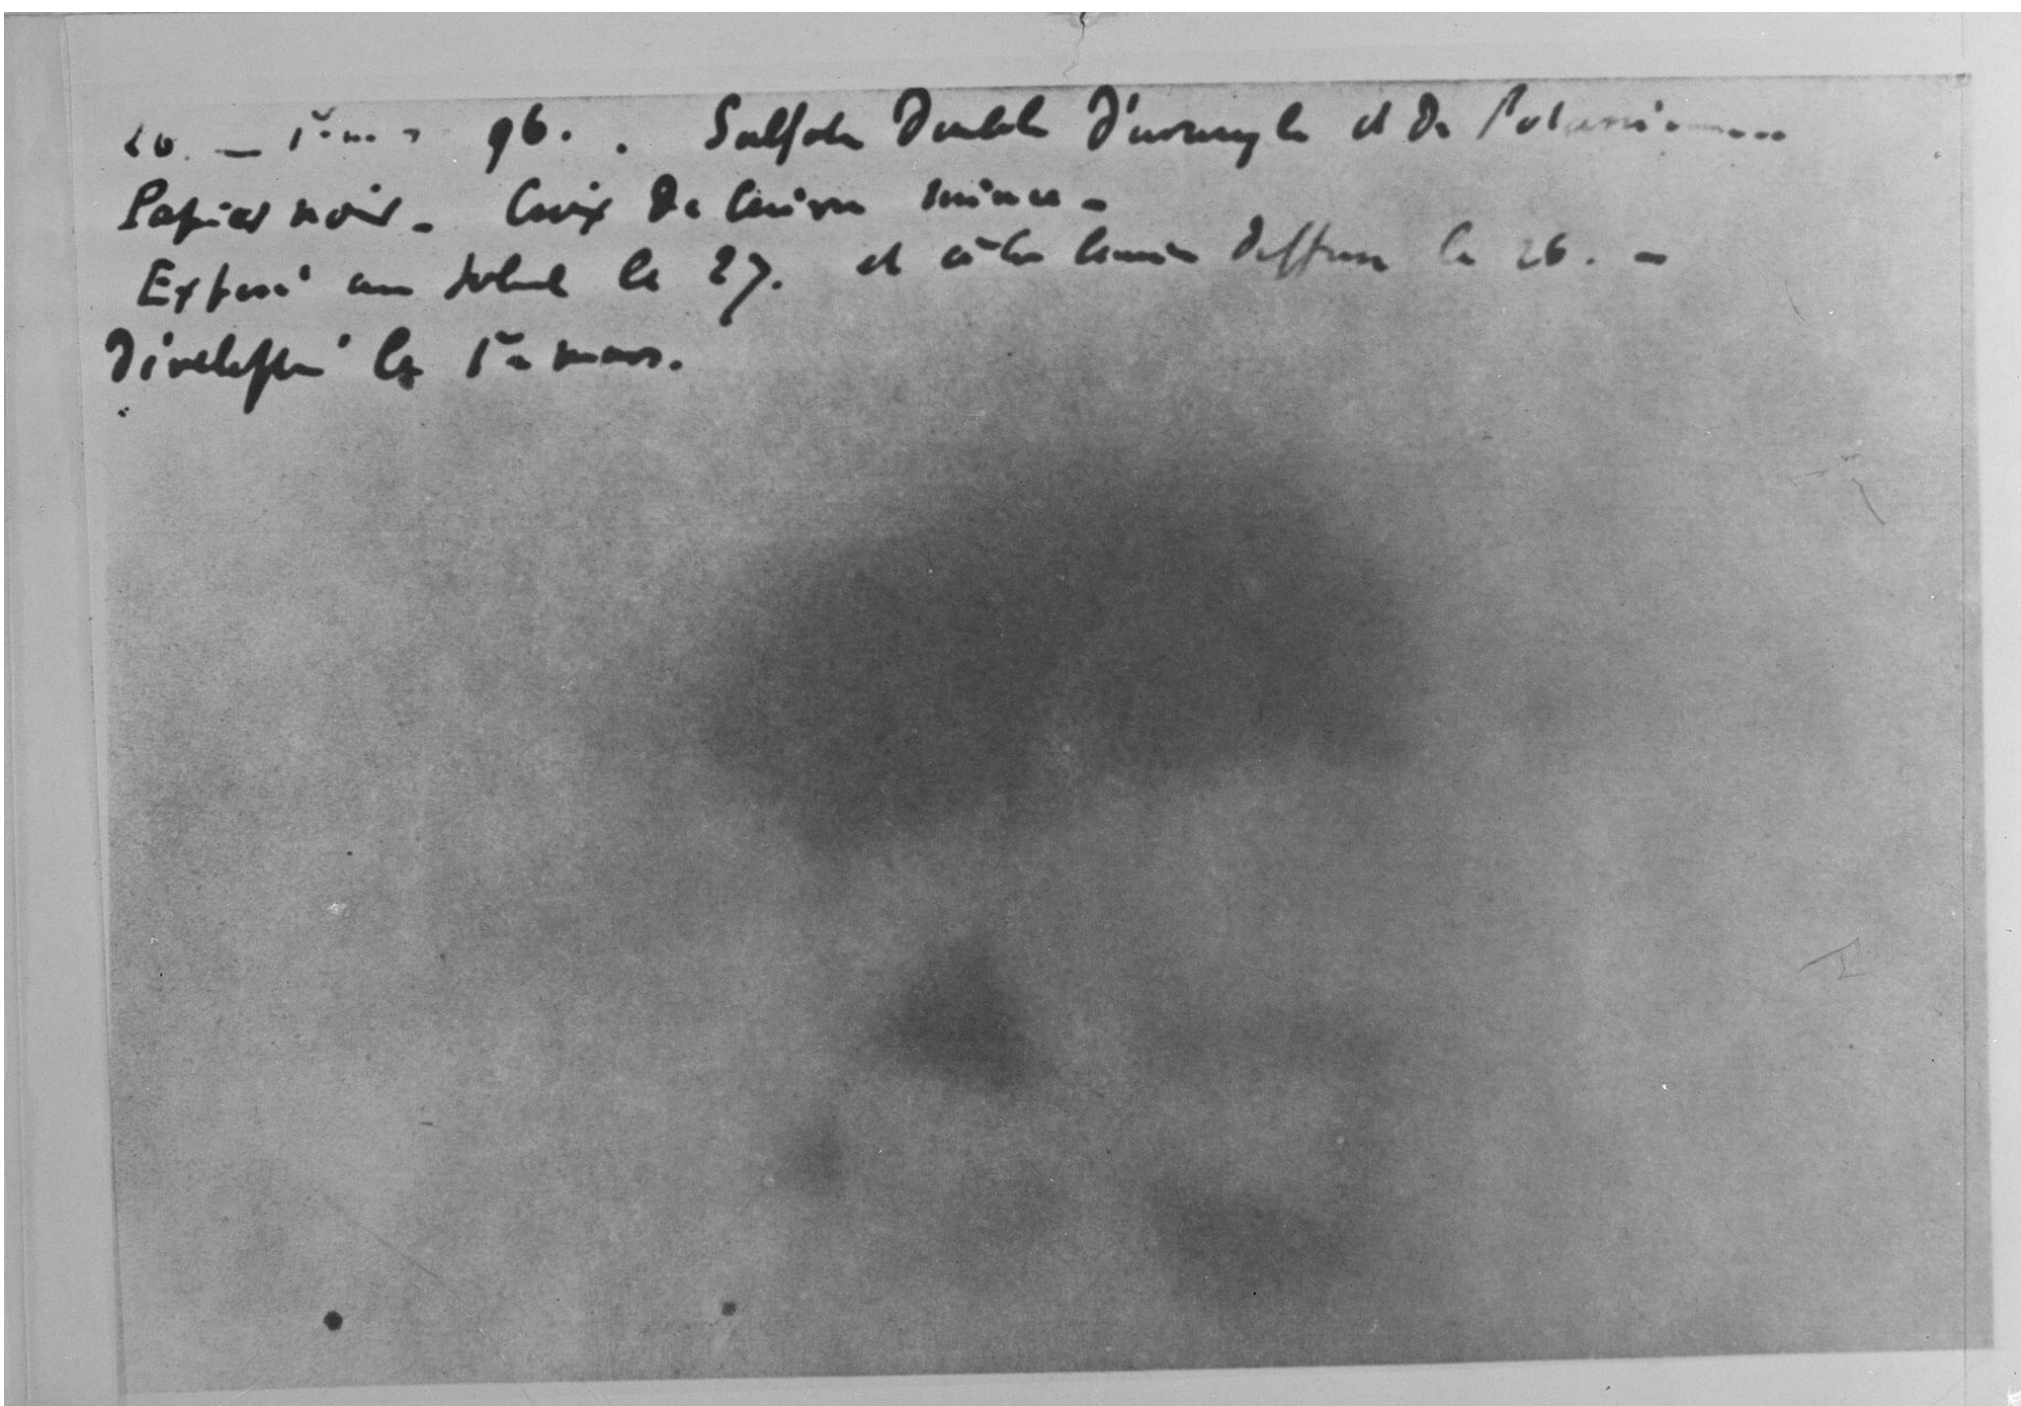 96. Sulfate Double D'uranyle et de Potassium
Papier noir. Croix de Cuivre mince -
Exposé au soleil le 27. et à la lumière diffuse le 26. -
Développé le 1er mars.